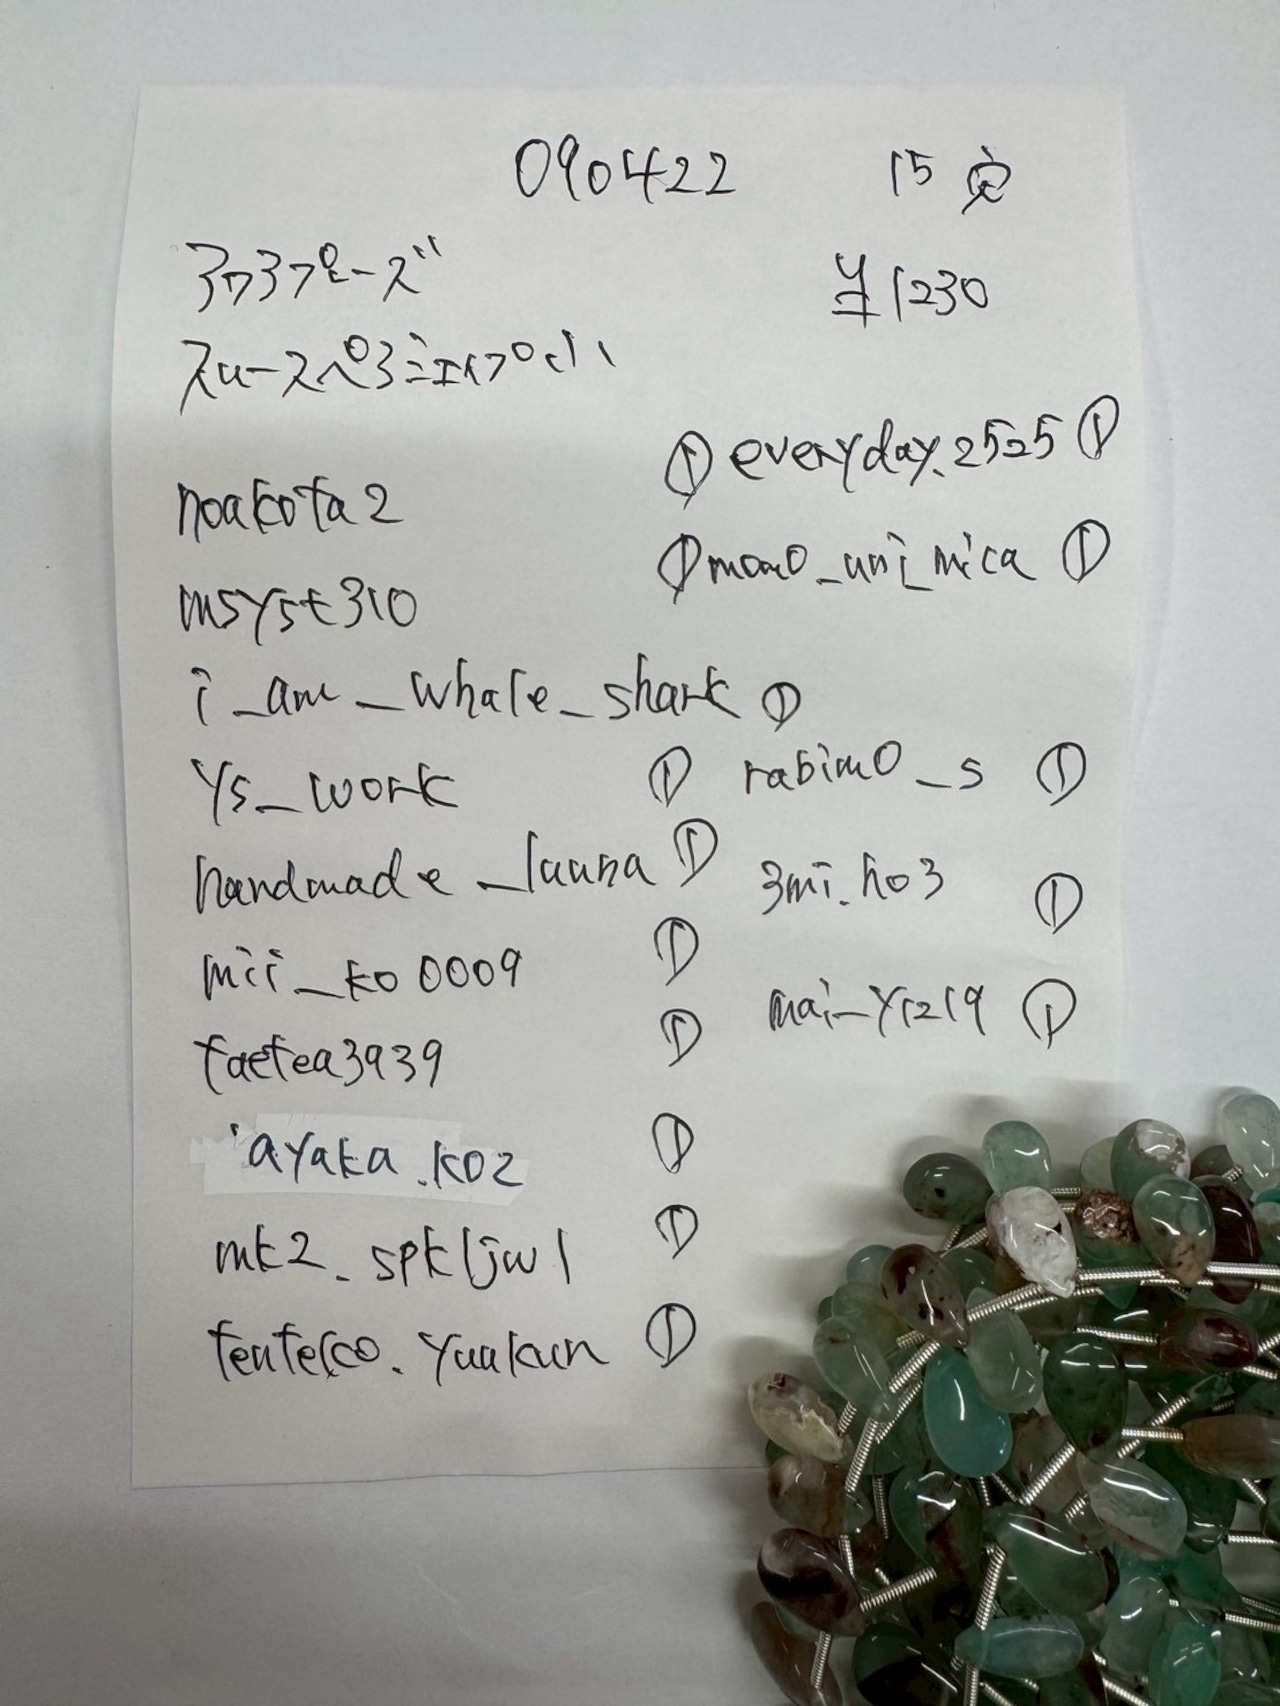 090422 15
アクアプレーズ
スムースペアシェイプ小 ¥1230
noakota2 ①
everyday.2525 ①
msyst310 ①
momo_uni_mica ①
i_am_whale_shark ①
ys_work ①
rabimo_s ①
handmade_launa ①
3mi.ho3 ①
mii_ko0009 ①
mai_y1219 ①
taetea3939 ①
ayaka.k02 ①
mk2_spkljwl ①
①